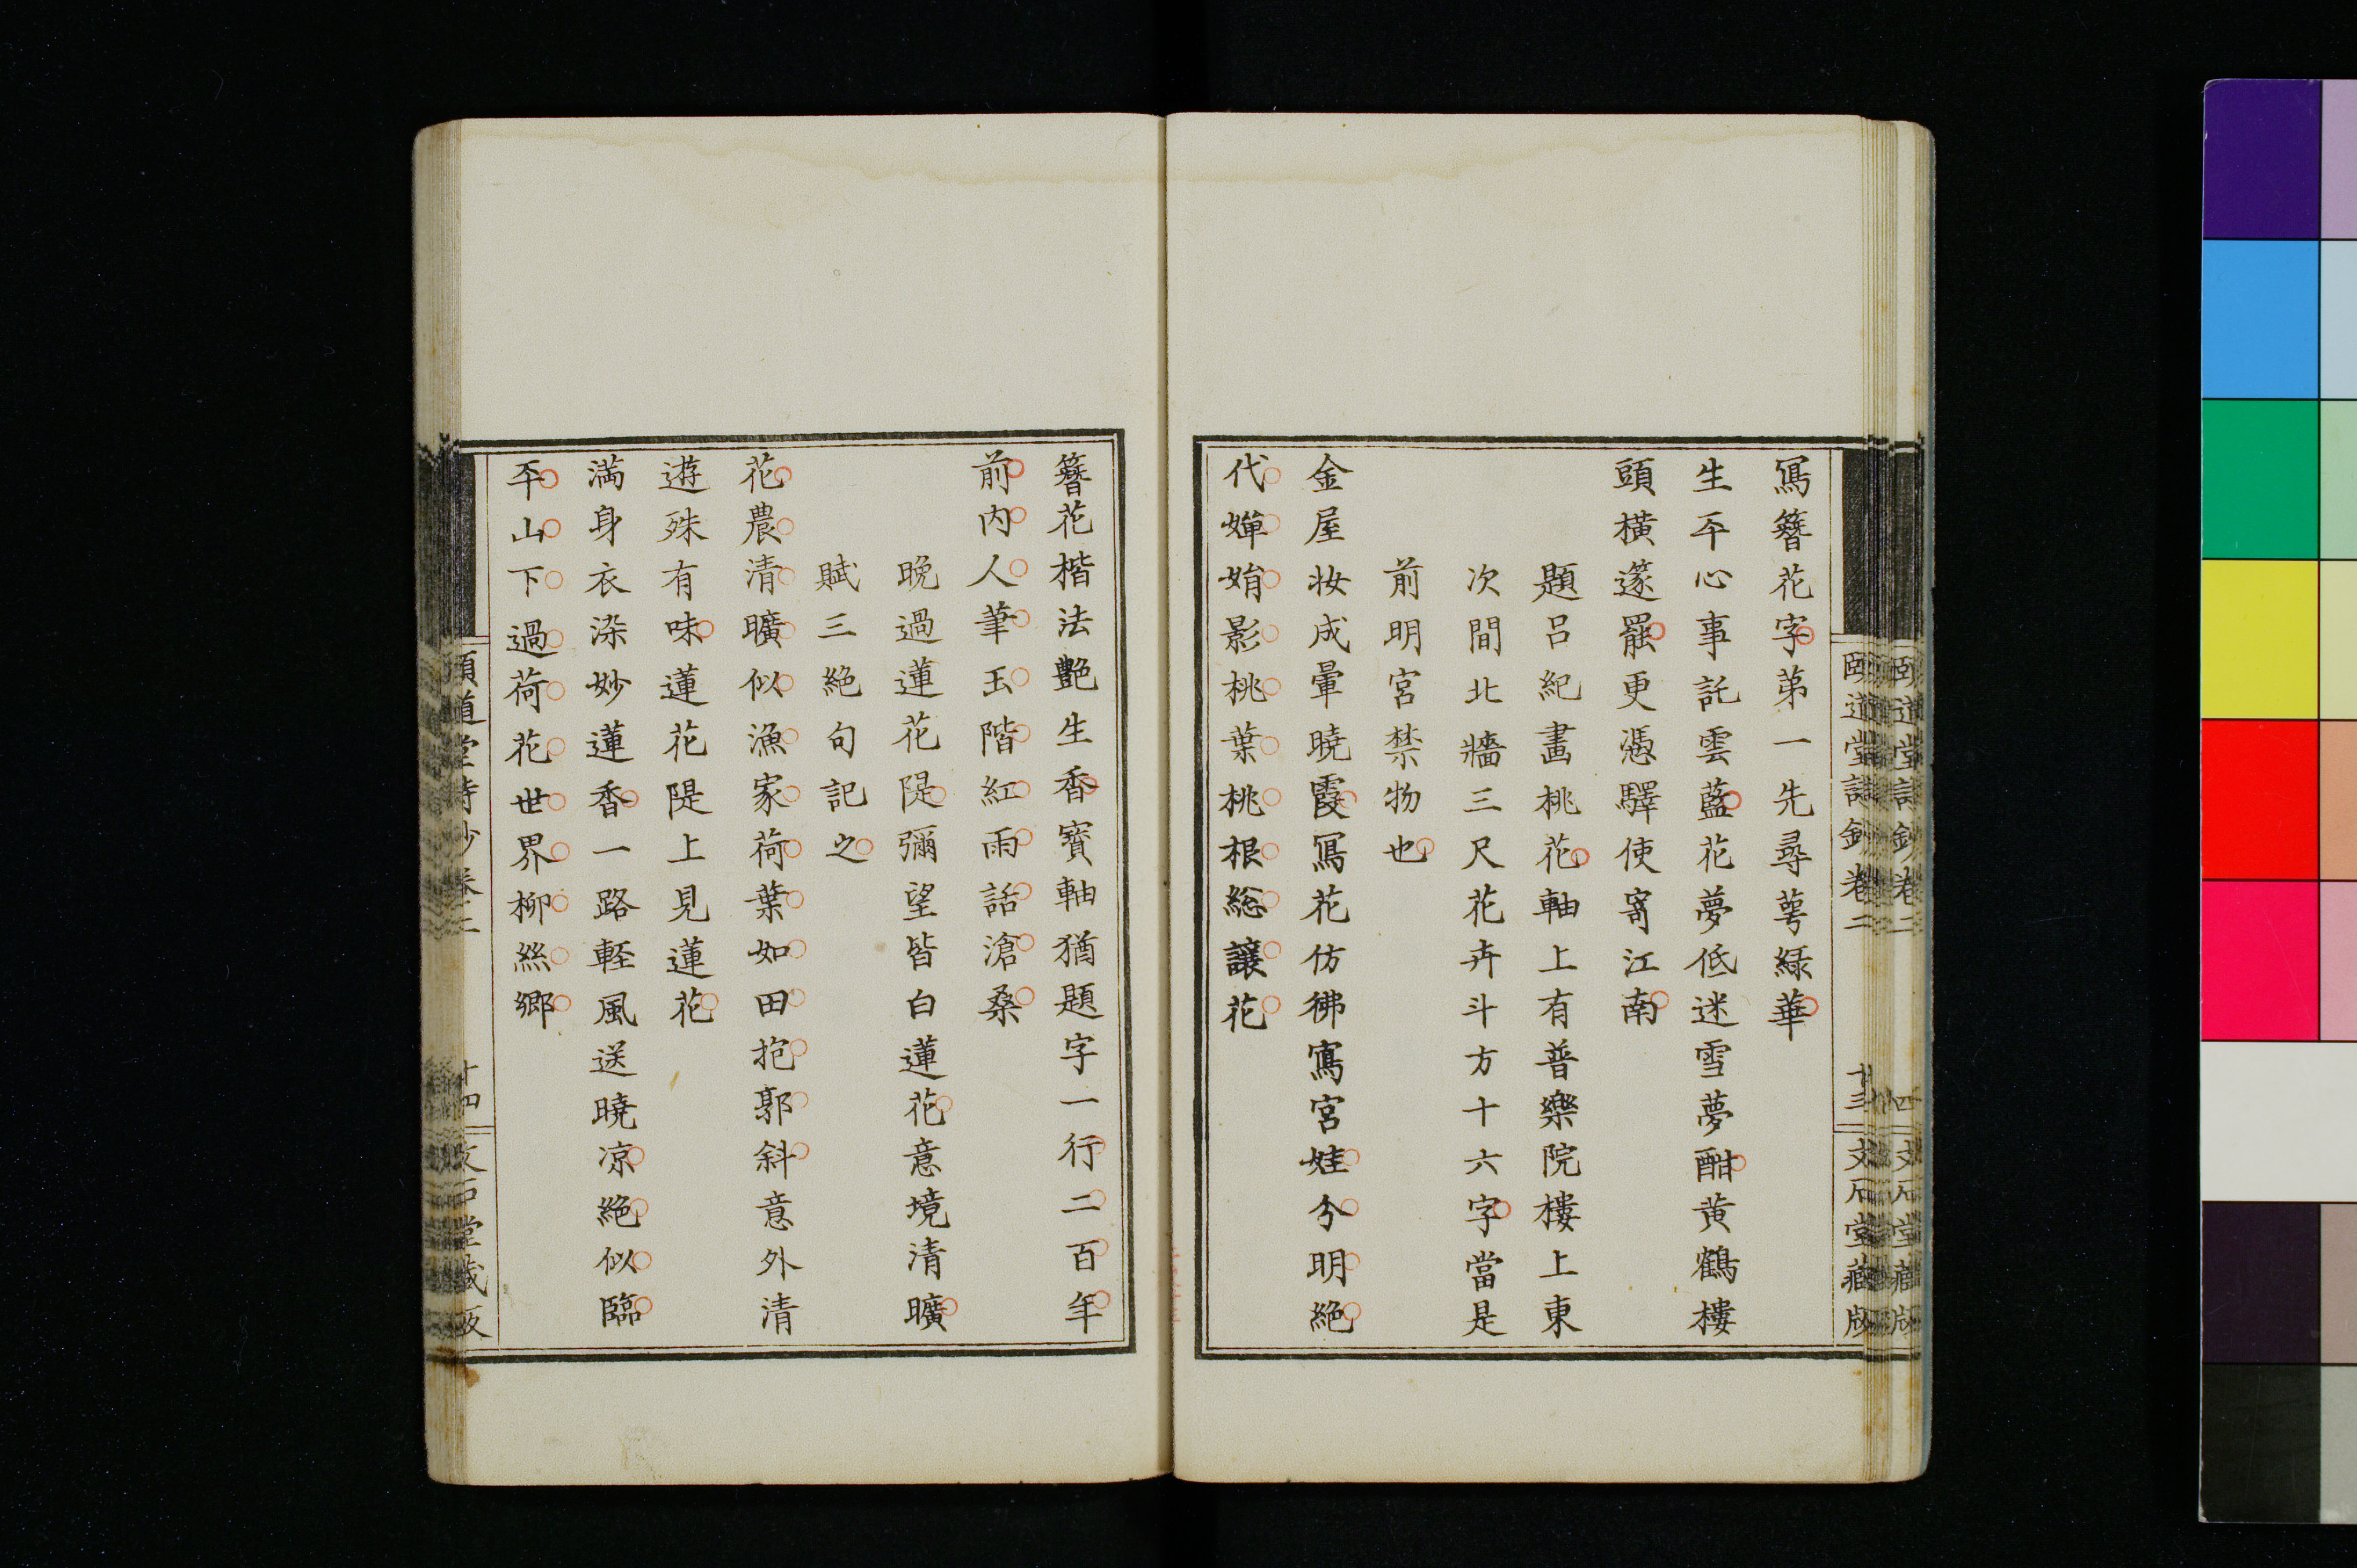 寫簪花字第一先尋萼綠華
生平心事託雲藍花夢低迷雪夢酣黃鶴樓
頭橫篴罷更憑驛使寄江南
題呂紀畫桃花軸上有普樂院樓上東
次間北牆三尺花卉斗方十六字當是
前明宮禁物也
金屋妝成暈曉霞寫花仿彿寫宮娃分明絕
代嬋娟影桃葉桃根総讓花
簪花楷法艷生香寶軸猶題字一行二百年
前內人筆玉階紅雨話滄桑
晚過蓮花隄彌望皆白蓮花意境清曠
賦三絕句記之
花農清曠似漁家荷葉如田抱郭斜意外清
遊殊有味蓮花隄上見蓮花
滿身衣染妙蓮香一路輕風送曉凉絕似臨
平山下過荷花世界柳絲鄉
十四